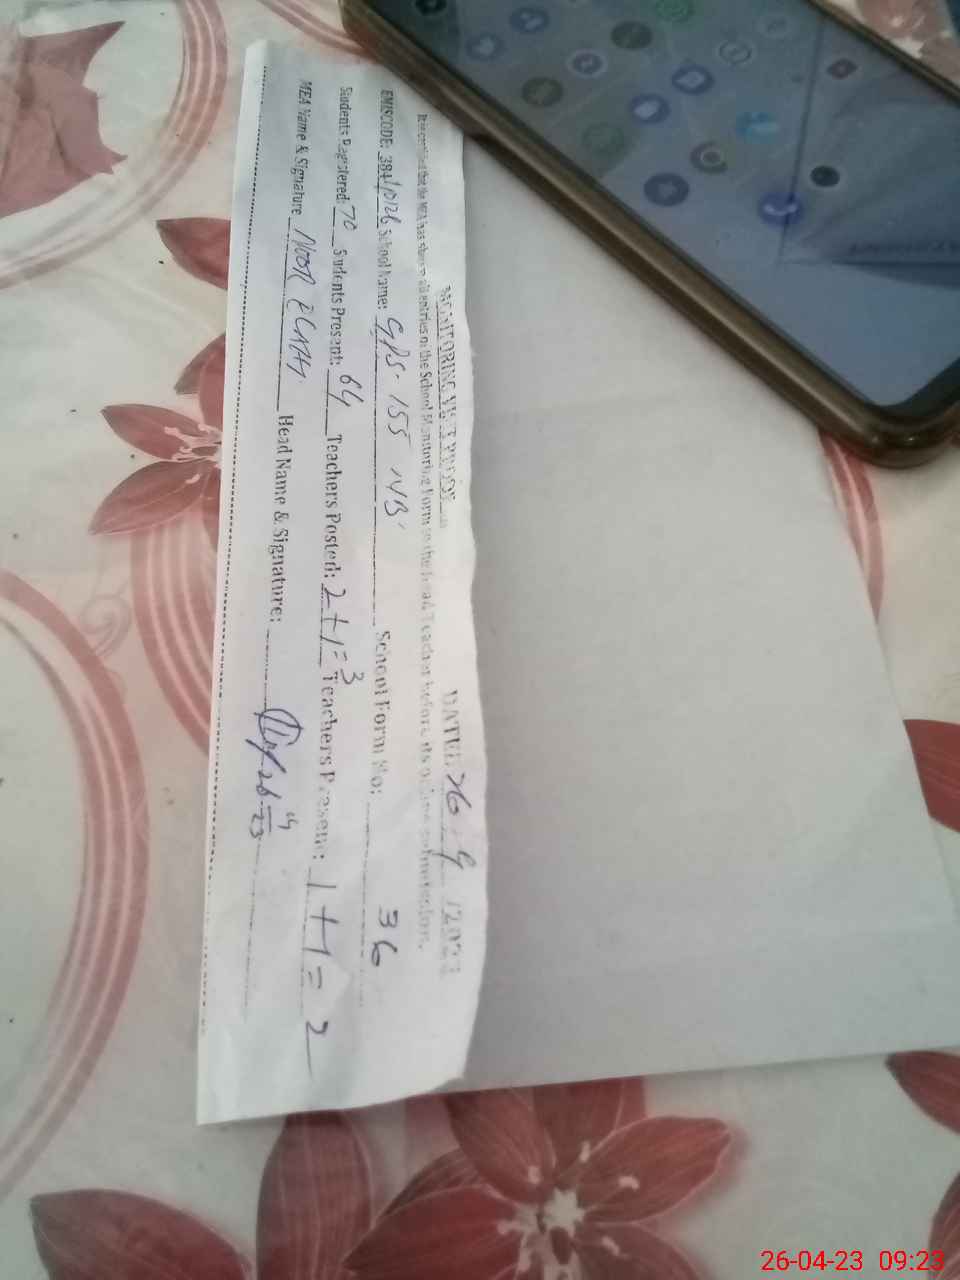 MONITORING VISIT PROOF DATE: 26 . 4 /2023
It is certified that the MEA has shown all entries of the School Monitoring Form to the Head Teacher before its online submission.
EMISCODE: 38410126 School Name: GPS. 155 NB School Form No: 36
Students Registered: 70 Students Present: 64 Teachers Posted: 2+1=3 Teachers Present: 1+1=2
MEA Name & Signature NOOR ELAHI Head Name & Signature:
26-04-23 09:23